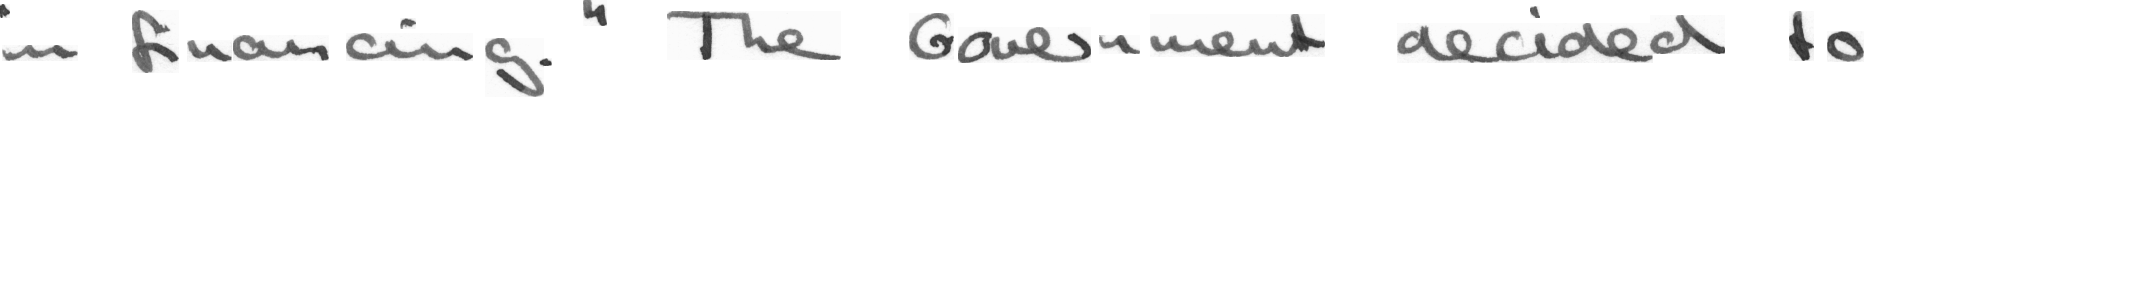 in financing." The Government decided to